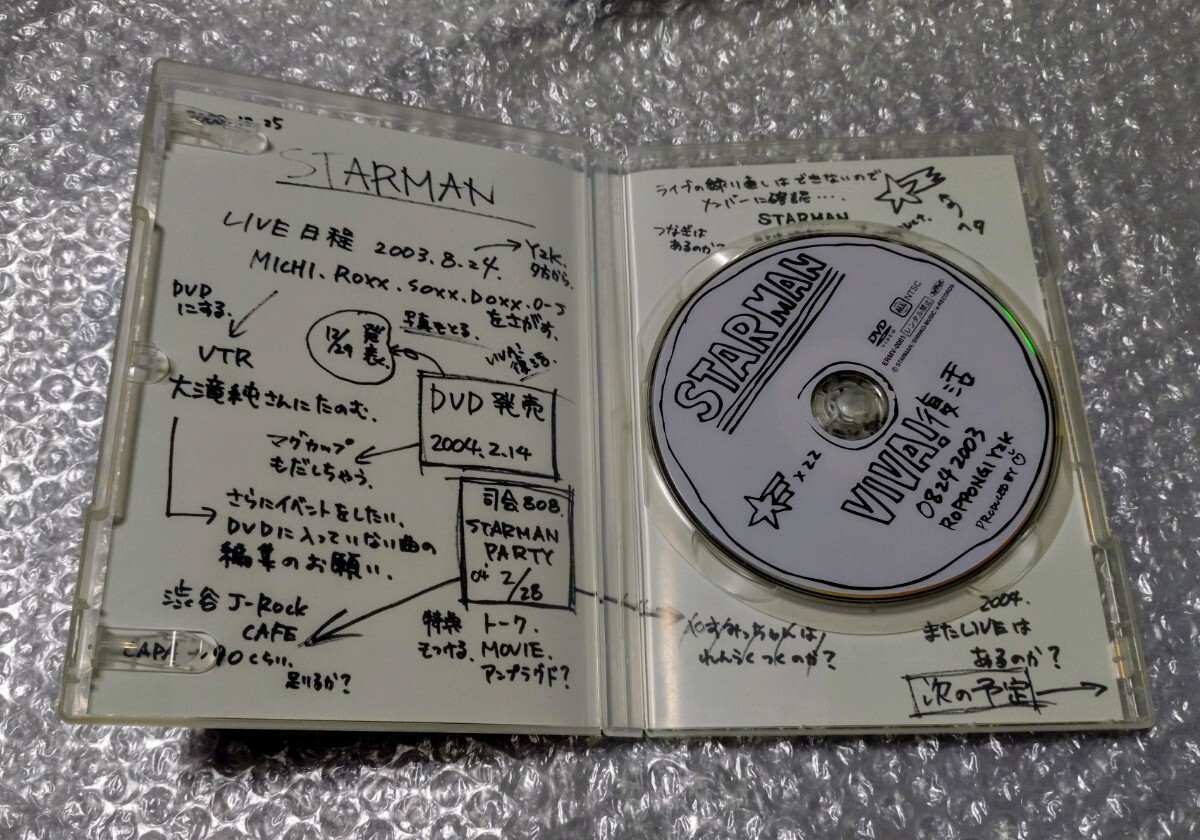 12.25
STARMAN
LIVE 日程 2003.8.24.
Y2K.
夕方から。
MICHI. Roxx. Soxx. Doxx. ロース
をさがす。
DVD
にする。
VTR
12/29 発表。
写真もとる。
VIVA!
復活
大三竜純さんにたのむ。
DVD 発売
2004.2.14
マグカップ
もだしちゃう。
さらにイベントをしたい。
DVDに入っていない曲の
編集のお願い。
司会808.
STARMAN
PARTY
04. 2/28
渋谷 J-Rock
CAFE
CAPA 90くらい。
足りるか?
特典 トーク、
もつける、MOVIE、
アンプラグド?
ライブの録り直しはできないので
メンバーに確認....
STARMAN
つなぎは
あるのか?
STARMAN
DVD
VIDEO
NTSC
ERMV-0001
レンタル禁止
x22
VIVA!復活
08242003
ROPPONGI Y2K
PRODUCED BY
れんらくつくのか?
2004.
またLIVEは
あるのか?
次の予定